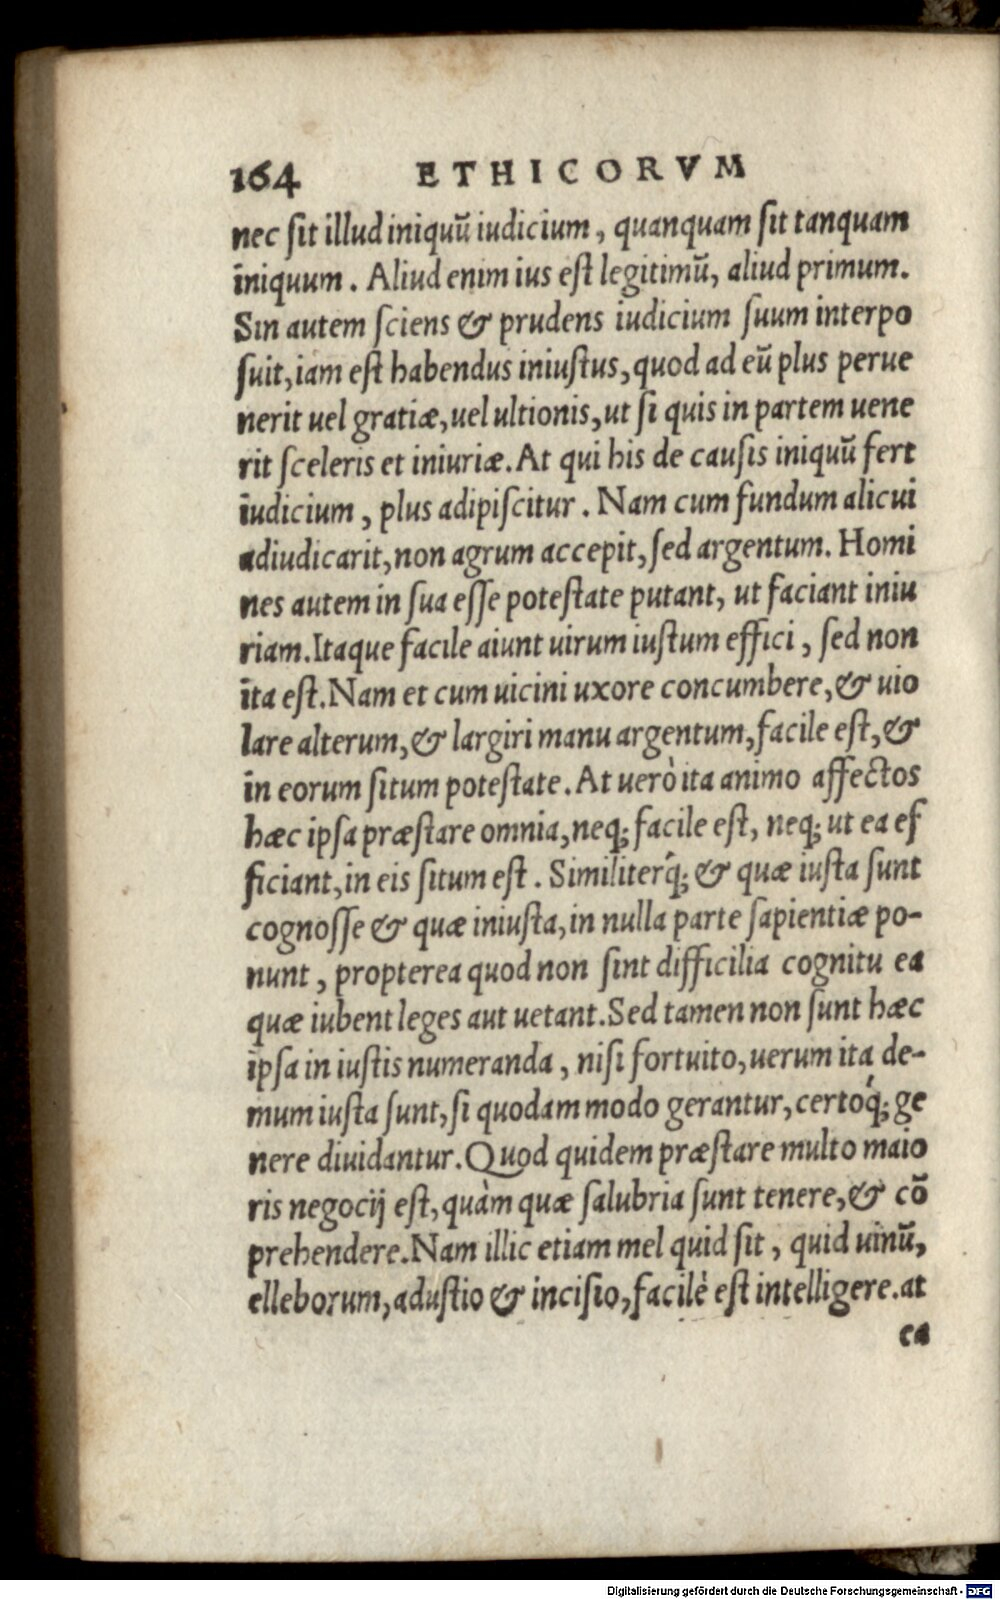 164 ETHICORVM
nec sit illud iniquū iudicium, quanquam sit tanquam
iniquum. Aliud enim ius est legitimū, aliud primum.
Sin autem sciens & prudens iudicium suum interpo
suit, iam est habendus iniustus, quod ad eū plus perue
nerit uel gratiæ, uel ultionis, ut si quis in partem uene
rit sceleris et iniuriæ. At qui his de causis iniquū fert
iudicium, plus adipiscitur. Nam cum fundum alicui
adiudicarit, non agrum accepit, sed argentum. Homi
nes autem in sua esse potestate putant, ut faciant iniu
riam. Itaque facile aiunt uirum iustum effici, sed non
ita est. Nam et cum uicini uxore concumbere, & uio
lare alterum, & largiri manu argentum, facile est, &
in eorum situm potestate. At uerò ita animo affectos
hæc ipsa præstare omnia, neq; facile est, neq; ut ea ef
ficiant, in eis situm est. Similiterq́; & quæ iusta sunt
cognosse & quæ iniusta, in nulla parte sapientiæ po-
nunt, propterea quod non sint difficilia cognitu ea
quæ iubent leges aut uetant. Sed tamen non sunt hæc
ipsa in iustis numeranda, nisi fortuito, uerum ita de-
mum iusta sunt, si quodam modo gerantur, certoq́; ge
nere diuidantur. Quod quidem præstare multo maio
ris negocij est, quàm quæ salubria sunt tenere, & cō
prehendere. Nam illic etiam mel quid sit, quid uinū,
elleborum, adustio & incisio, facilè est intelligere. at
ea
Digitalisierung gefördert durch die Deutsche Forschungsgemeinschaft - DFG